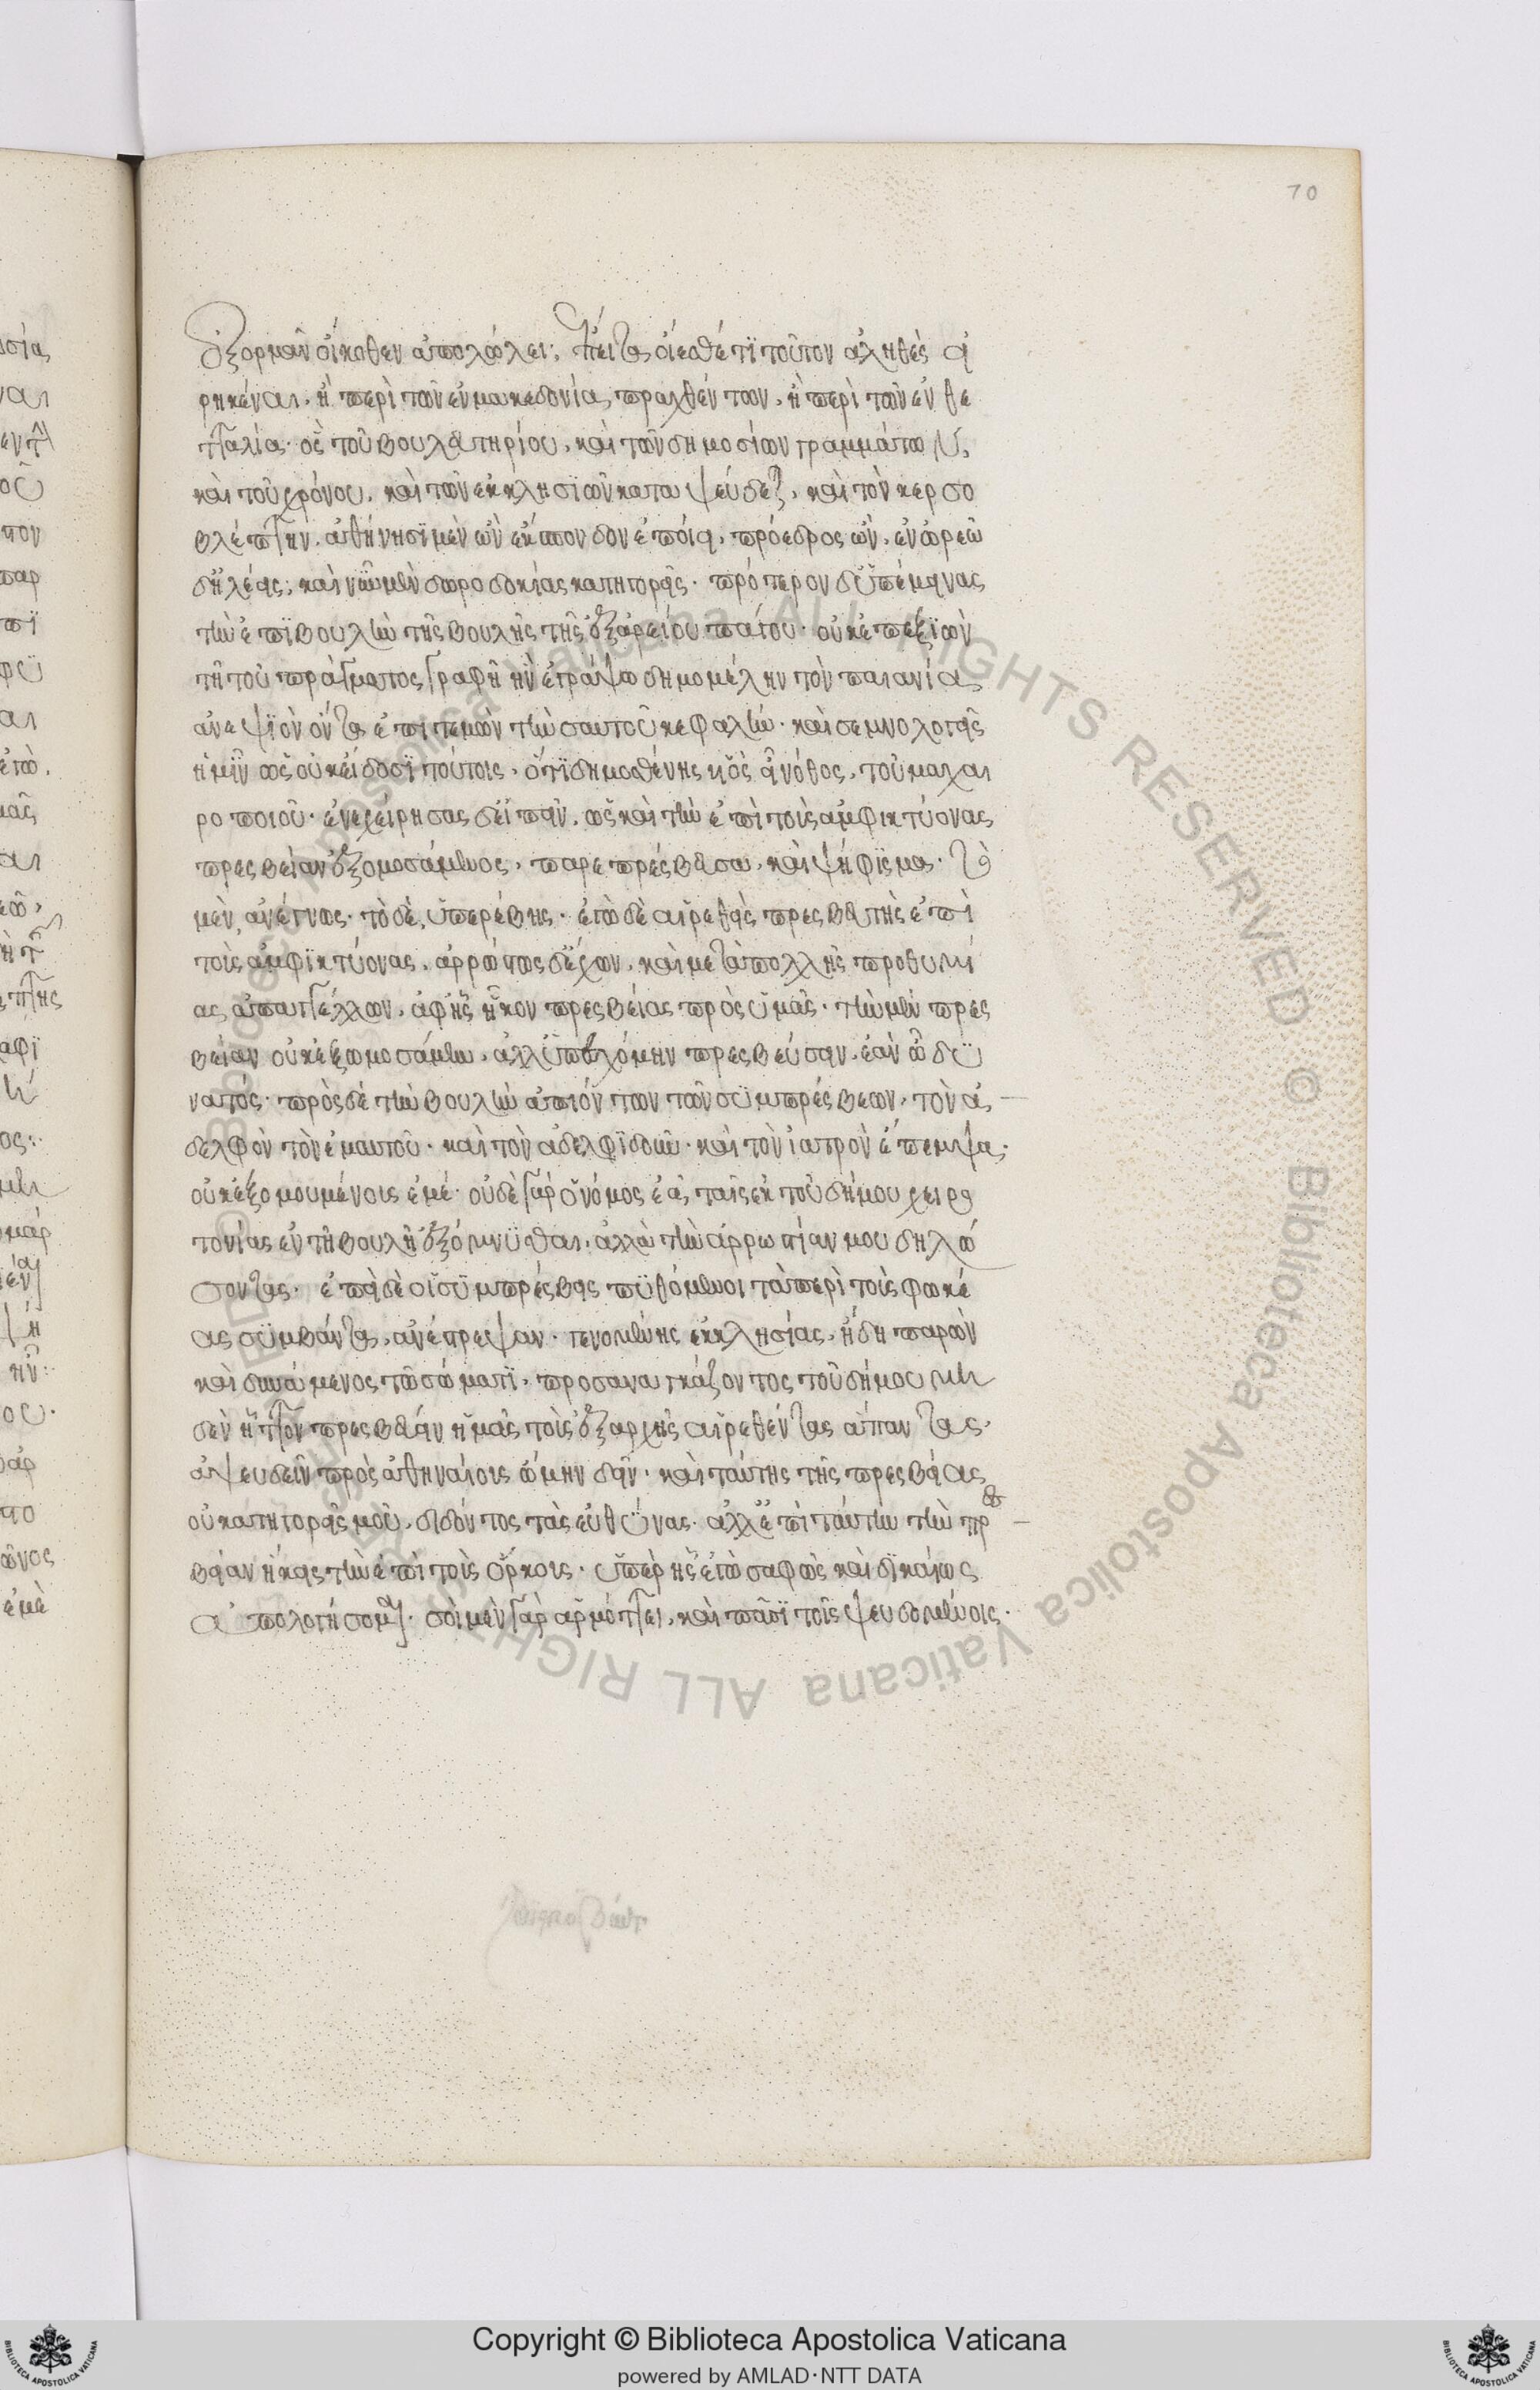 70
ἐξορμᾶν οἴκοθεν ἀπολώλει· ἔπειτα οἴεσθέ τι τοῦτον ἀληθὲς εἰ
ρηκέναι, ἢ περὶ τῶν ἐν μακεδονίᾳ πραχθέντων, ἢ περὶ τῶν ἐν θε
τταλίᾳ· ὃς τοῦ βουλευτηρίου, καὶ τῶν δημοσίων γραμμάτων,
καὶ τοῦ χρόνου, καὶ τῶν ἐκκλησιῶν καταψεύδεται, καὶ τὸν κερσο
βλέπτην, ἀθήνησι μὲν ὢν ἔκσπονδον ἐποίει, πρόεδρος ὢν, ἐν ὠρεῶ
δ' ἠλέεις; καὶ νῦν μὲν δωροδοκίας κατηγορεῖς· πρότερον δ' ὑπέμεινας
τὴν ἐπιβουλὴν τῆς βουλῆς τῆς ἐξ ἀρείου πάγου· οὐκ ἐπεξιὼν
τῆ τοῦ τραύματος γραφῆ ἣν ἐγράψω δημομέλην τὸν παιανιέα
ἀνεψιὸν ὄντα ἐπιτεμὼν τὴν σαυτοῦ κεφαλήν· καὶ σεμνολογεῖς
ἡμῖν ὡς οὐκ εἰδόσι τούτοις, ὅτι δημοσθένους υἱὸς εἶ νόθος, τοῦ μαχαι
ροποιοῦ· ἐνεχείρησας δ' εἰπεῖν, ὡς καὶ τὴν ἐπὶ τοὺς ἀμφικτύονας
πρεσβείαν ἐξομοσάμενος, παρεπρέσβευσα, καὶ ψήφισμα· τὸ
μὲν, ἀνέγνως· τὸ δὲ, ὑπερέβης· ἐγὼ δὲ αἱρεθεὶς πρεσβευτὴς ἐπὶ
τοὺς ἀμφικτύονας, ἀρρώστως δ' ἔχων, καὶ μετὰ πολλῆς προθυμί
ας ἀπαγγέλλων, ἀφ' ἧς ἧκον πρεσβείας πρὸς ὑμᾶς· τὴν μὲν πρεσ
βείαν οὐκ ἐξωμοσάμην, ἀλλ' ὑπεσχόμην πρεσβεύσειν, ἐὰν ὦ δυ
νατός· πρὸς δὲ τὴν βουλὴν ἀπιόντων τῶν συμπρέσβεων, τὸν ἀ
δελφὸν τὸν ἐμαυτοῦ· καὶ τὸν ἀδελφιδοῦν· καὶ τὸν ἰατρὸν ἔπεμψα·
οὐκ ἐξομουμένους ἐμέ· οὐδὲ γὰρ ὁ νόμος ἐᾷ, ταῖς ἐκ τοῦ δήμου χειρο
τονίας ἐν τῆ βουλῆ ἐξόμνυσθαι, ἀλλὰ τὴν ἀρρωστίαν μου δηλώ
σοντας· ἐπεὶ δὲ οἱ συμπρέσβεις πυθόμενοι τὰ περὶ τοὺς φωκέ
ας συμβάντα, ἀνέστρεψαν· γενομένης ἐκκλησίας, ἤδη παρὼν
καὶ δυνάμενος τῶ σώματι, προσαναγκάζοντος τοῦ δήμου μη
δὲν ἧττον πρεσβεύειν ἡμᾶς τοὺς ἐξ ἀρχῆς αἱρεθέντας ἅπαντας·
ἀψευδεῖν πρὸς ἀθηναίους ᾤμην δεῖν· καὶ ταύτης τῆς πρεσβείας
οὐ κατηγορεῖς μοῦ, διδόντος τὰς εὐθύνας· ἀλλ' ἐπὶ ταύτην τὴν πρεσ
βείαν ἥκεις τὴν ἐπὶ τοὺς ὅρκους· ὑπὲρ ἧς ἐγὼ σαφῶς καὶ δικαίως
ἀπολογήσομαι· σοὶ μὲν γὰρ ἁρμόττει, καὶ πᾶσι τοῖς ψευδομένοις·
Copyright © Biblioteca Apostolica Vaticana
powered by AMLAD·NTT DATA